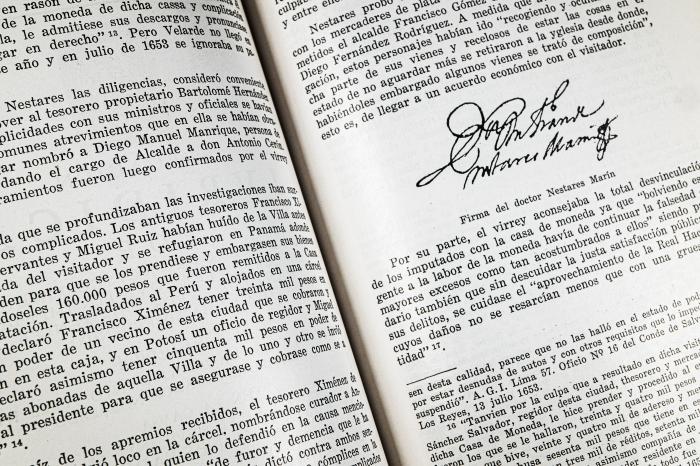 en razón de
de la moneda de dicha cassa y complicación
le, admitiese sus descargos y pronunciase
gar en derecho" 13. Pero Velarde no llegó
e año y en julio de 1653 se ignoraba su pa
Nestares las diligencias, consideró conveniente
over al tesorero propietario Bartolomé Hernández
plicidades con sus ministros y oficiales se havían
comunes atrevimientos que en ella se habían obra
gar nombró a Diego Manuel Manrique, persona de
dando el cargo de Alcalde a don Antonio
ramientos fueron luego confirmados por el virrey
la que se profundizaban las investigaciones iban sur
os complicados. Los antiguos tesoreros Francisco
ervantes y Miguel Ruiz habían huído de la Villa antes
da del visitador y se refugiaron en Panamá adonde
den para que se los prendiese y embargasen sus bienes
doseles 160.000 pesos que fueron remitidos a la Casa
atación. Trasladados al Perú y alojados en una cárcel
declaró Francisco Ximénez tener treinta mil pesos en
poder de un vecino de esta ciudad que se cobraron y
n en esta caja, y en Potosí un oficio de regidor y Miguel
claró asimismo tener cincuenta mil pesos en poder de
as abonadas de aquella Villa y de lo uno y otro se invió
al presidente para que se asegurase y cobrase como se a
" 14.
íz de los apremios recibidos, el tesorero Ximénez de
drió loco en la cárcel, nombrándose curador a
quien lo defendió en la causa
"de furor y demencia que le ha
dictó contra ambos sen
cómplices en la
culpa
y entre
Nestares probó
con los mercaderes de plata
metidos el alcalde Francisco Gómez
Diego Fernández Rodríguez. A medida que
gación, estos personajes habían ido "recogiendo y
cha parte de sus vienes y recelosos de estar las cosas en
estado de no aguardar más se retiraron a la yglesia desde donde,
habiéndoles embargado algunos vienes se trató de composición",
esto es, de llegar a un acuerdo económico con el visitador.
Firma del doctor Nestares Marín
Por su parte, el virrey aconsejaba la total desvinculació
de los imputados con la casa de moneda ya que "bolviendo es
gente a la labor de la moneda havía de continuar la falsedad
mayores excesos como tan acostumbrados a ellos" siendo p
dario también que sin descuidar la justa satisfacción públic
sus delitos, se cuidase el "aprovechamiento de la Real Hac
cuyos daños no se resarcían menos que con una grue
tidad" 17.
sen desta calidad, parece que no las halló en el estado de
por estar desnudas de autos y con otros requisitos que lo impe
suspendió". A. G. I. Lima 57. Oficio Nº 16 del Conde de Salv
Los Reyes, 13 julio 1653.
16 "Tanvien por la culpa que a resultado en dicha visit
Sánchez Salvador, regidor desta ciudad, thesorero y merca
dicha Casa de Moneda, le hice prender y procedido al
los que se le hallaron, treinta y quatro mil pesos
en que bive, veinte y quatro mil de aderezo y
buenas, sesenta mil pesos que tiene en
tres mil de réditos, setenta
asimismo compañía